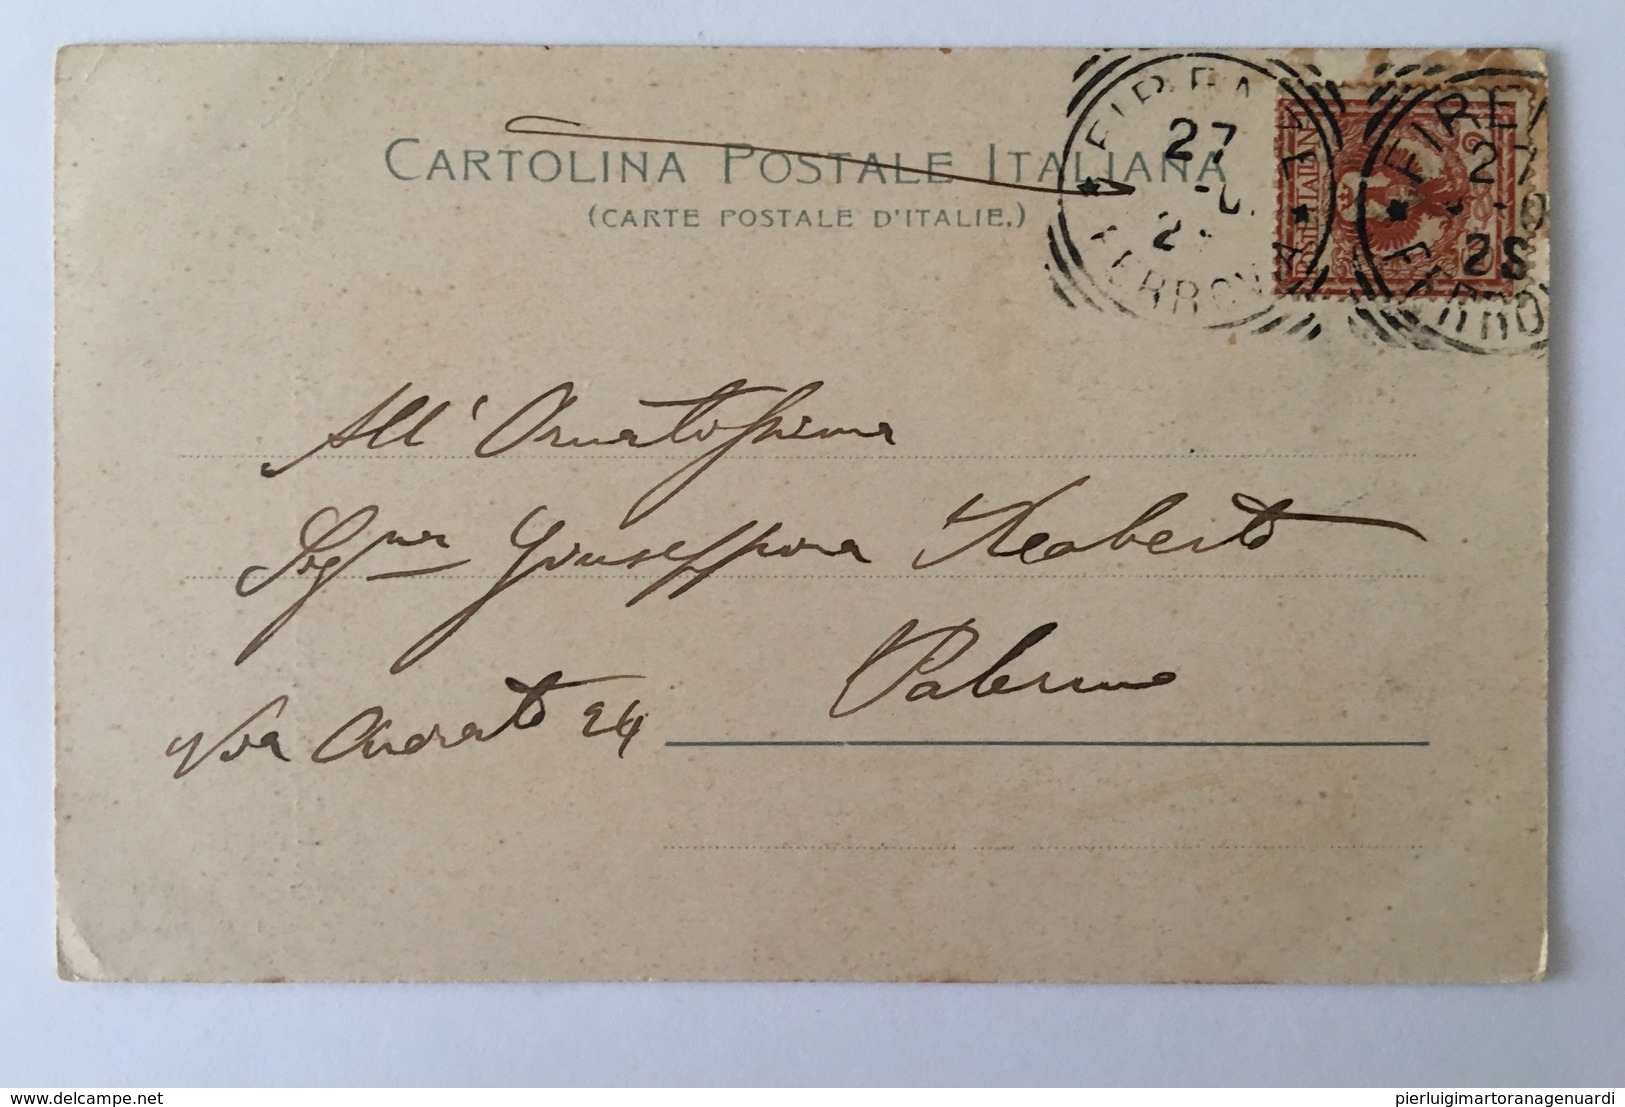 CARTOLINA POSTALE ITALIANA
(CARTE POSTALE D'ITALIE.)
FIRENZE
27
2
FERROVIA
POSTE ITALIANE
FIRE
27
2S
FERRO
All' Ornatissima
Sig.na Giuseppina
Via 24
Palermo
delcampe.net
pierluigimartoranagenuardi